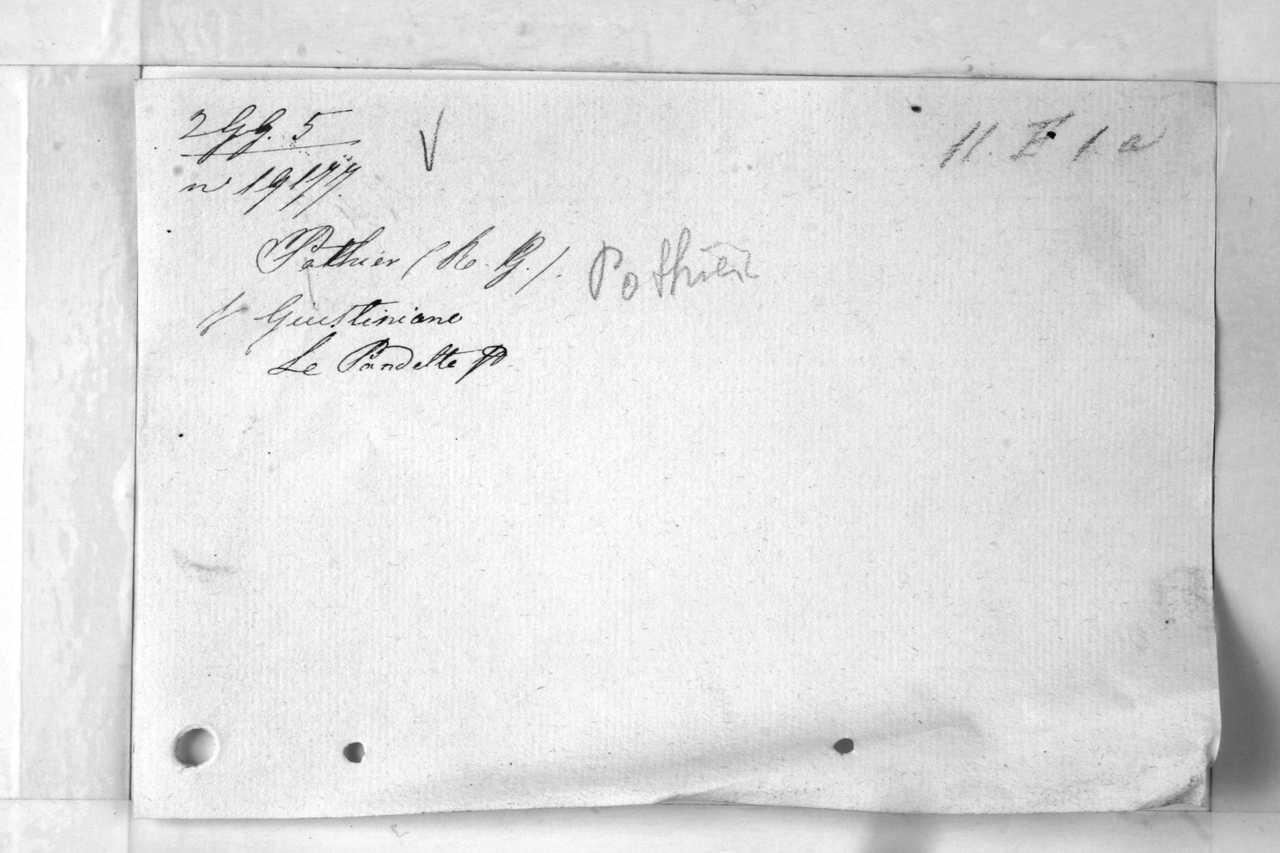 2 Gg. 5 V
11. E 1. a
nº 19177.
Pothier (R. G.). Pothier
f Giustiniano
Le Pandette